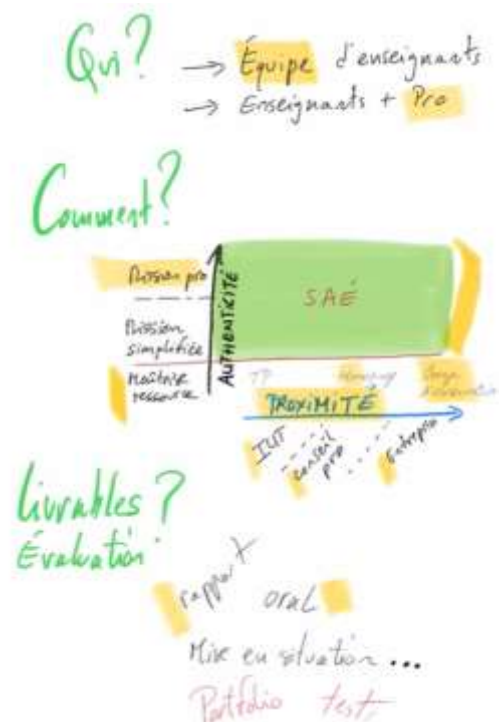 Qui?
→ Équipe d'enseignants
→ Enseignants + Pro
Comment?
Mission pro
Mission simplifiée
Maîtrise ressource
AUTHENTICITÉ
SAÉ
TP
PROXIMITÉ
IUT
conseil pro
Entreprise
Livrables?
Évaluation
rapport
oral
Mise en situation...
Portfolio test